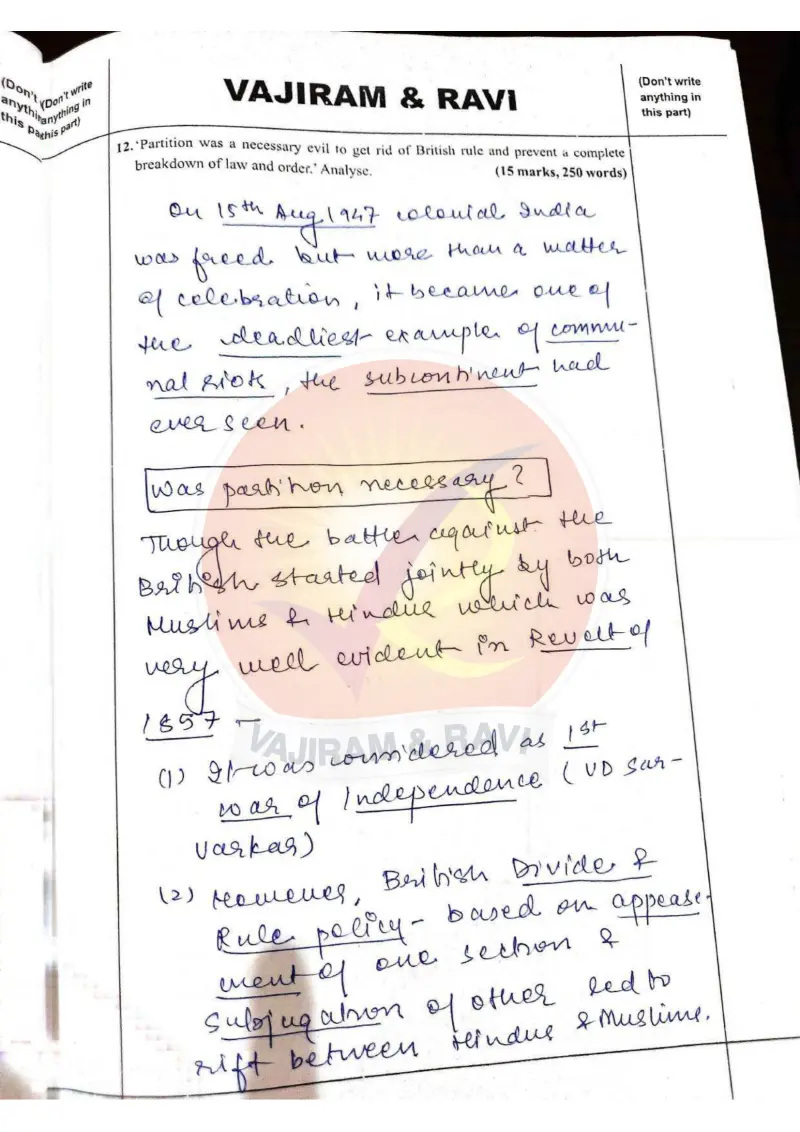 (Don't
anything in
this part)
(Don't write
anything in
this part)
VAJIRAM & RAVI
(Don't write
anything in
this part)
12. 'Partition was a necessary evil to get rid of British rule and prevent a complete
breakdown of law and order.' Analyse. (15 marks, 250 words)
On 15th Aug 1947 colonial India
was freed but more than a matter
of celebration, it became one of
the deadliest example of commu-
nal riots, the subcontinent had
ever seen.
Was partition necessary?
Though the battle against the
British started jointly by both
Muslims & Hindus which was
very well evident in Revolt of
1857 –
(1) It was considered as 1st
war of Independence (VD Sar-
varkar)
(2) However, British Divide &
Rule policy - based on appease-
ment of one section &
subjugation of other led to
rift between Hindus & Muslims.
VAJIRAM & RAVI